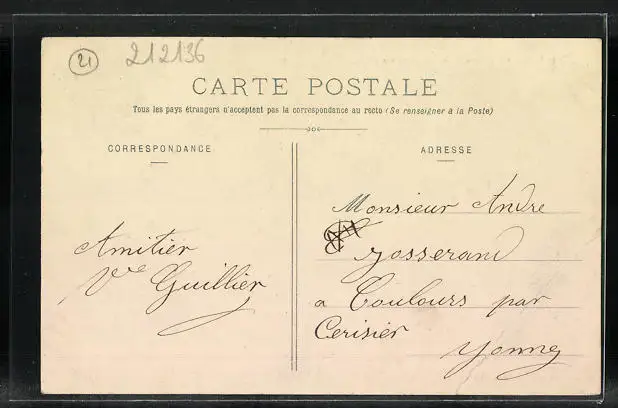 21
212136
CARTE POSTALE
Tous les pays étrangers n'acceptent pas la correspondance au recto (Se renseigner à la Poste)
CORRESPONDANCE
Amitier
Vve Guillier
ADRESSE
Monsieur André
Josserand
a Coulours par
Cerisier
Yonne